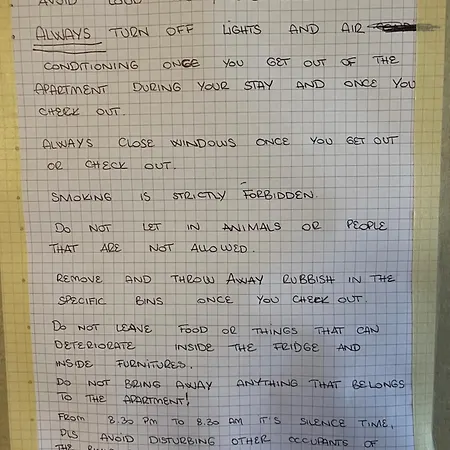 AVOID LOUD
ALWAYS TURN OFF LIGHTS AND AIR
CONDITIONING ONCE YOU GET OUT OF THE
APARTMENT DURING YOUR STAY AND ONCE YOU
CHECK OUT.
ALWAYS CLOSE WINDOWS ONCE YOU GET OUT
OR CHECK OUT.
SMOKING IS STRICTLY FORBIDDEN.
DO NOT LET IN ANIMALS OR PEOPLE
THAT ARE NOT ALLOWED.
REMOVE AND THROW AWAY RUBBISH IN THE
SPECIFIC BINS ONCE YOU CHECK OUT.
DO NOT LEAVE FOOD OR THINGS THAT CAN
DETERIORATE INSIDE THE FRIDGE AND
INSIDE FURNITURES.
DO NOT BRING AWAY ANYTHING THAT BELONGS
TO THE APARTMENT!
FROM 8.30 PM TO 8.30 AM IT'S SILENCE TIME,
PLS AVOID DISTURBING OTHER OCCUPANTS OF
THE